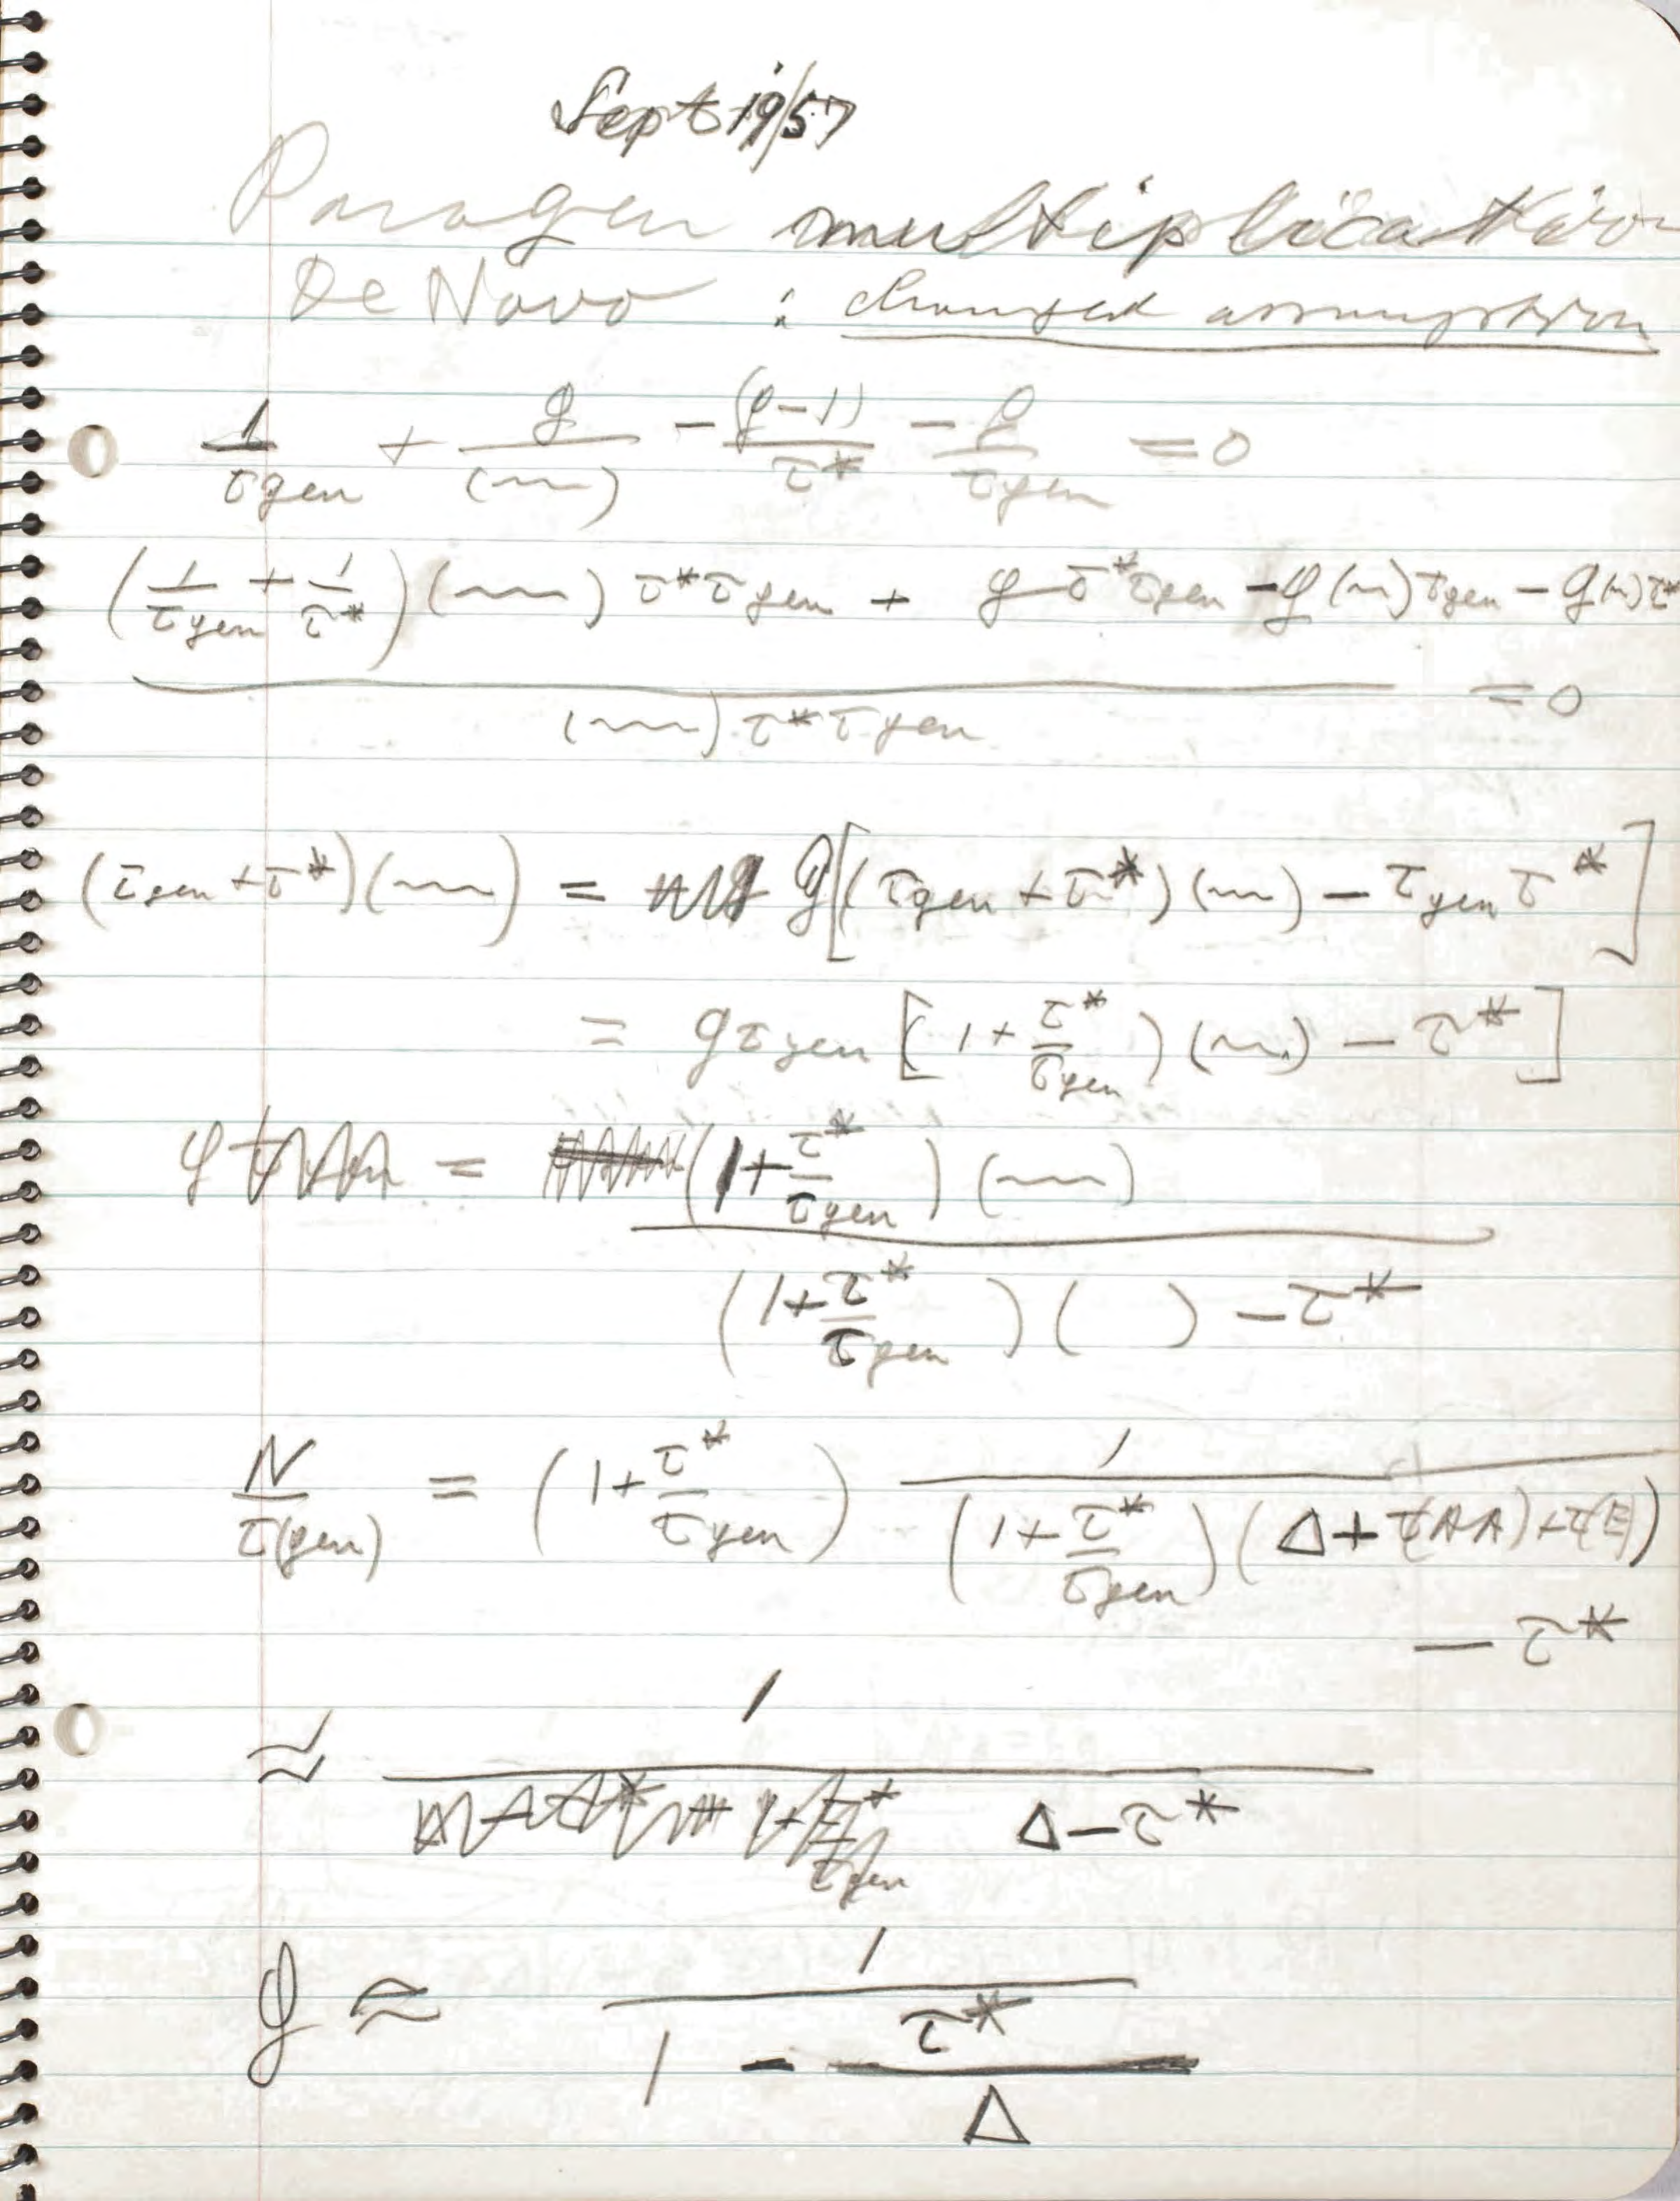 Sept 19/57
Paragen multiplication
De Novo : changed assumption
1/τgen + g/(~~) - (g-1)/τ* - g/τgen = 0
(1/τgen + 1/τ*)(~~) τ*τgen + g τ*τgen - g(~)τgen - g(~)τ*
= 0
(~~) τ*τgen
(τgen + τ*)(~~) = g[(τgen + τ*)(~) - τgen τ*]
= gτgen [1 + τ*/τgen)(~) - τ*]
g = (1 + τ*/τgen)(~~)
(1 + τ*/τgen)( ) - τ*
N/τ(gen) = (1 + τ*/τgen) 1/(1 + τ*/τgen)(Δ + τ(AA) + τ(E))
- τ*
≈ 1/Δ - τ*
g ≈ 1/1 - τ*/Δ